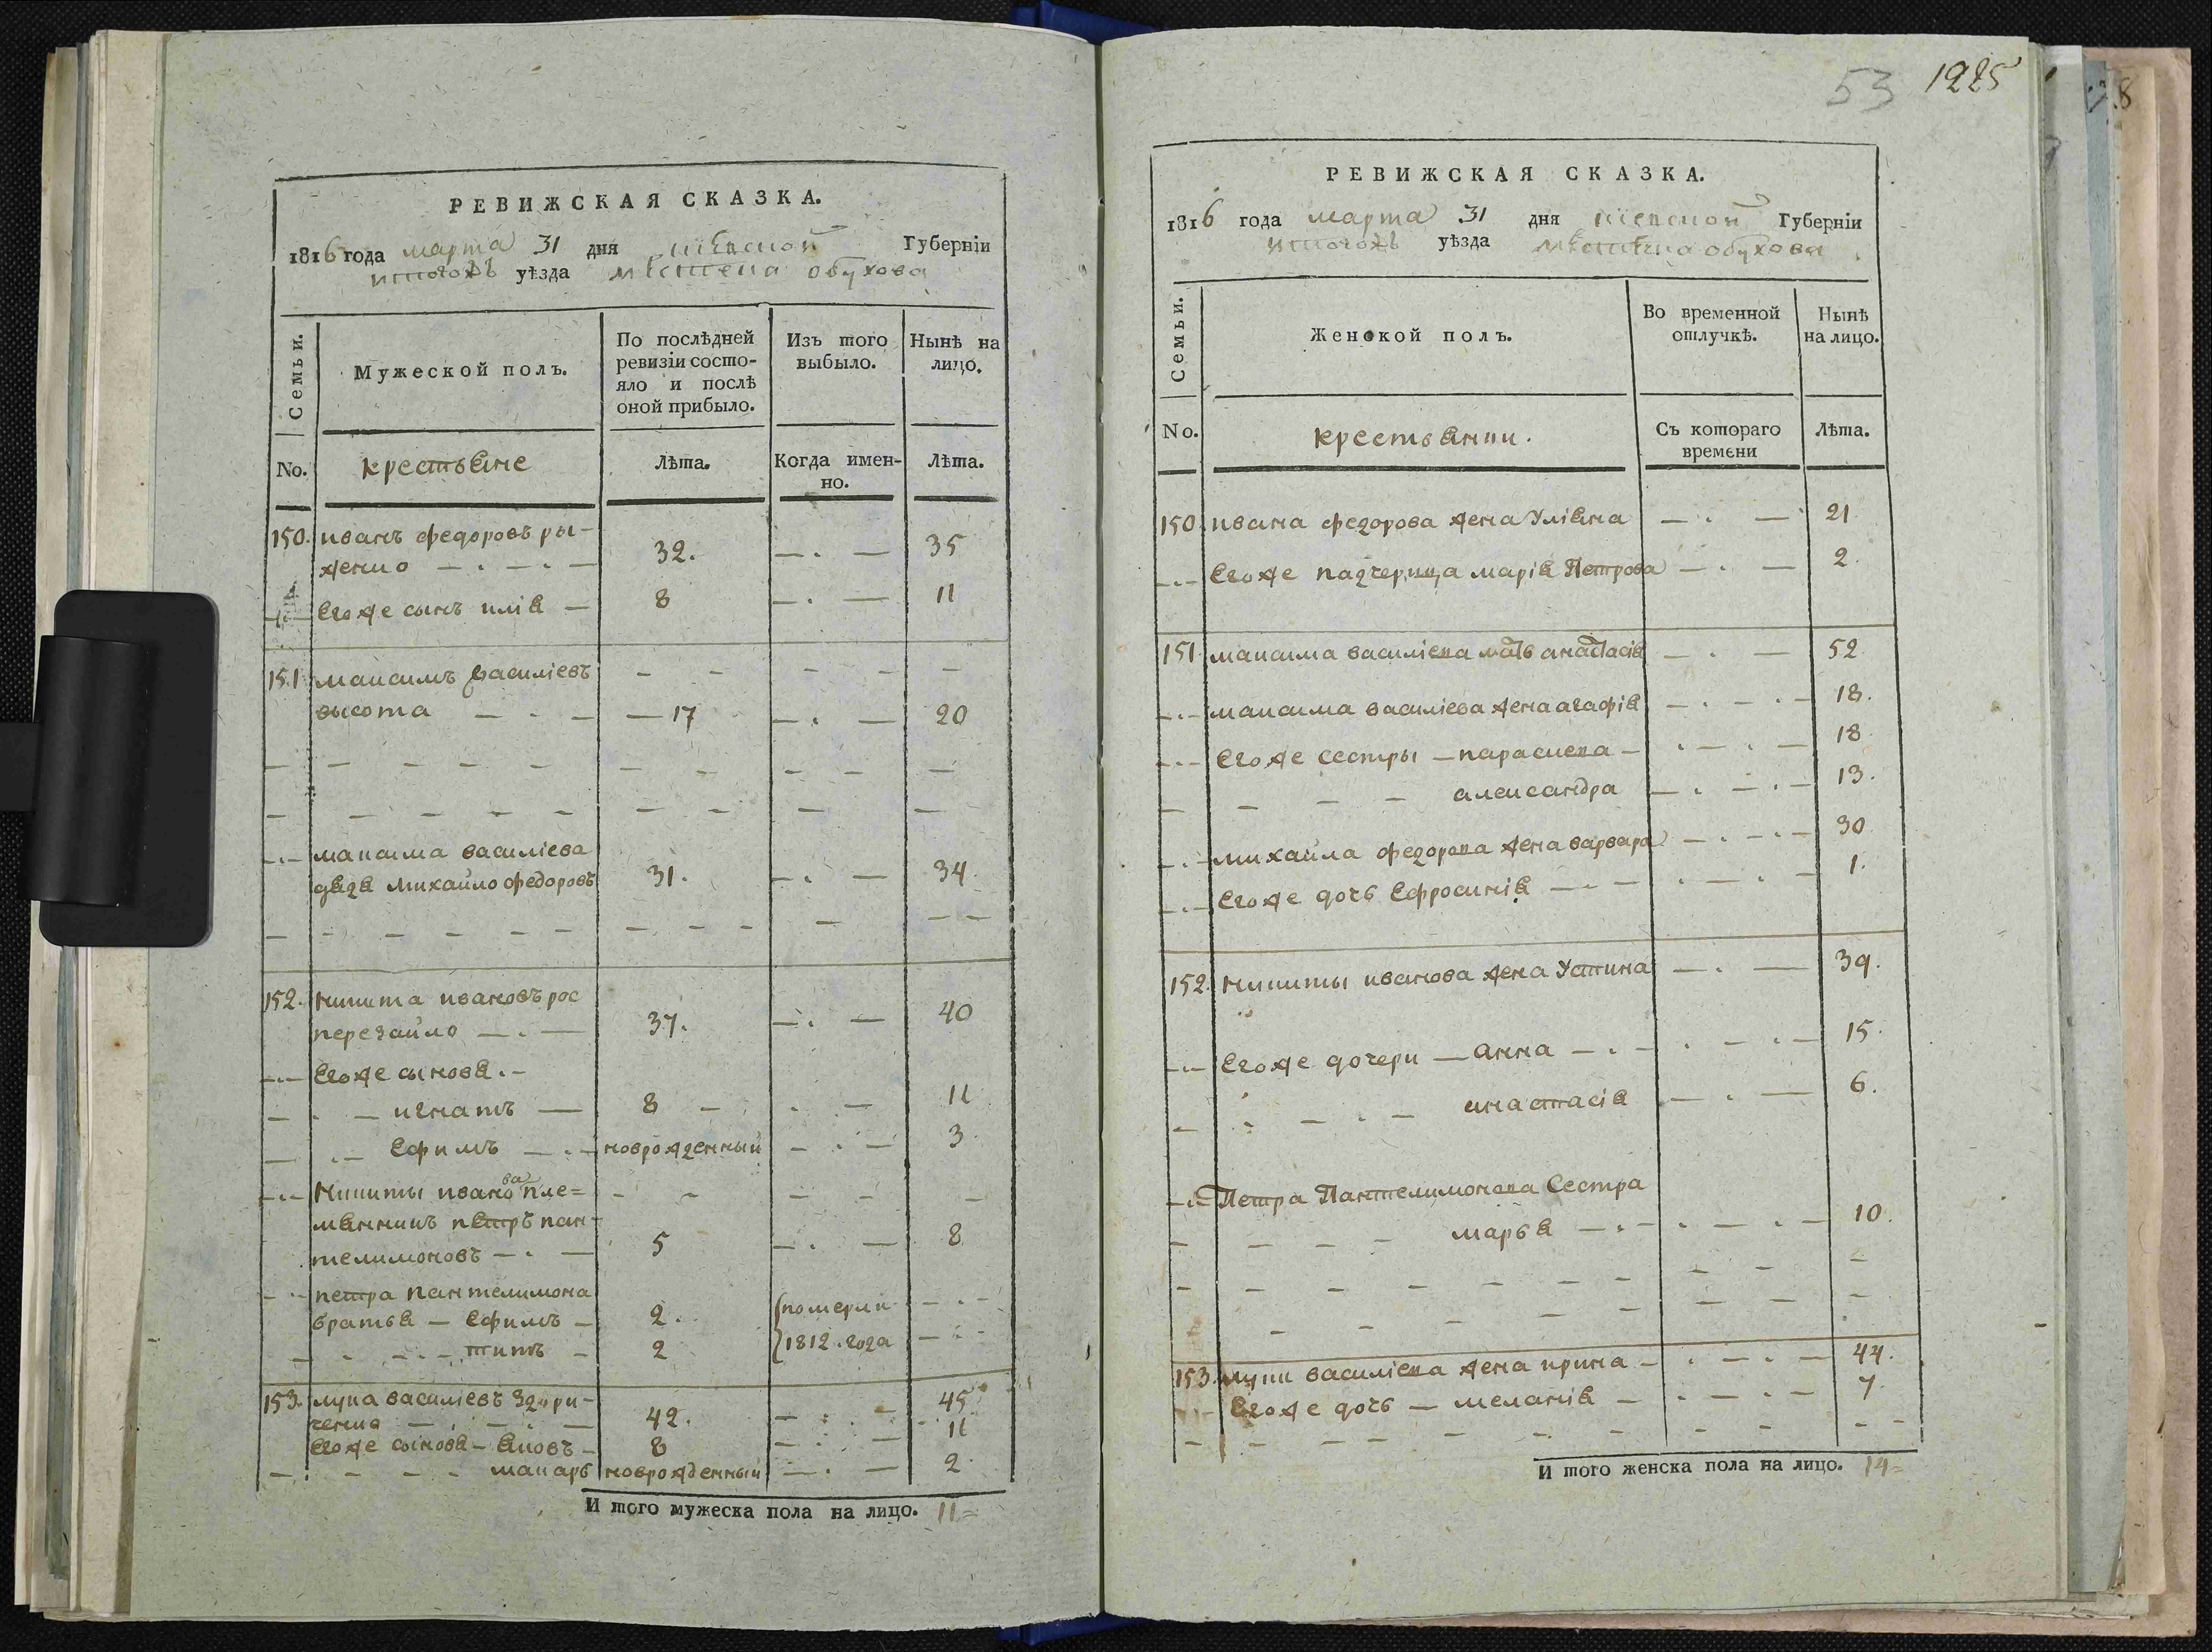 РЕВИЖСКАЯ СКАЗКА.
1816 года марта 31 дня кіевской Губерніи
тогожъ уѣзда мѣстечка обухова
Семьи.
Мужеской полъ.
По послѣдней ревизіи состо-
яло и послѣ
оной прибыло.
Изъ того
выбыло.
Нынѣ на
лицо.
No.
крестьяне
Лѣта.
Когда имен-
но.
Лѣта.
150. иванъ федоровъ ры-
женко 32. 35
Егоже сынъ илія 8 11
151 максимъ василіевъ
высота 17 20
максима василіева
дядя михайло федоровъ 31. 34.
152. никита ивановъ рос
перезайло 37. 40
Егоже сыновя
игнатъ 8 11
Ефимъ новрожденный 3.
никиты иванова пле=
мянникъ петръ пан-
телимоновъ 5 8
петра пантелимона
братья Ефимъ 2. померли
титъ 2 1812. года
153. лука василіевъ
ченко 42. 45
Егоже сыновя яковъ 8 11
макаръ новрожденный 2.
И того мужеска пола на лицо. 11=
53 1225
РЕВИЖСКАЯ СКАЗКА.
1816 года марта 31 дня кіевской Губерніи
тогожъ уѣзда мѣстечка обухова
Семьи.
Женской полъ.
Во временной
отлучкѣ.
Нынѣ
на лицо.
No.
крестьянки.
Съ котораго
времени
Лѣта.
150. ивана федорова жена Уліяна 21
Егоже падчерица марія Петрова 2.
151. максима василіева мать анастасія 52
максима василіева жена агафія 18.
Егоже сестры параскева 18
александра 13.
михайла федорова жена варвара 30
Егоже дочь Ефросинія 1.
152. никиты иванова жена Устина 39.
Егоже дочери анна 15.
анастасія 6.
Петра Пантелимонова Сестра
марья 10.
153. луки василіева жена ирина 44.
Егоже дочь меланія 7.
И того женска пола на лицо. 14=